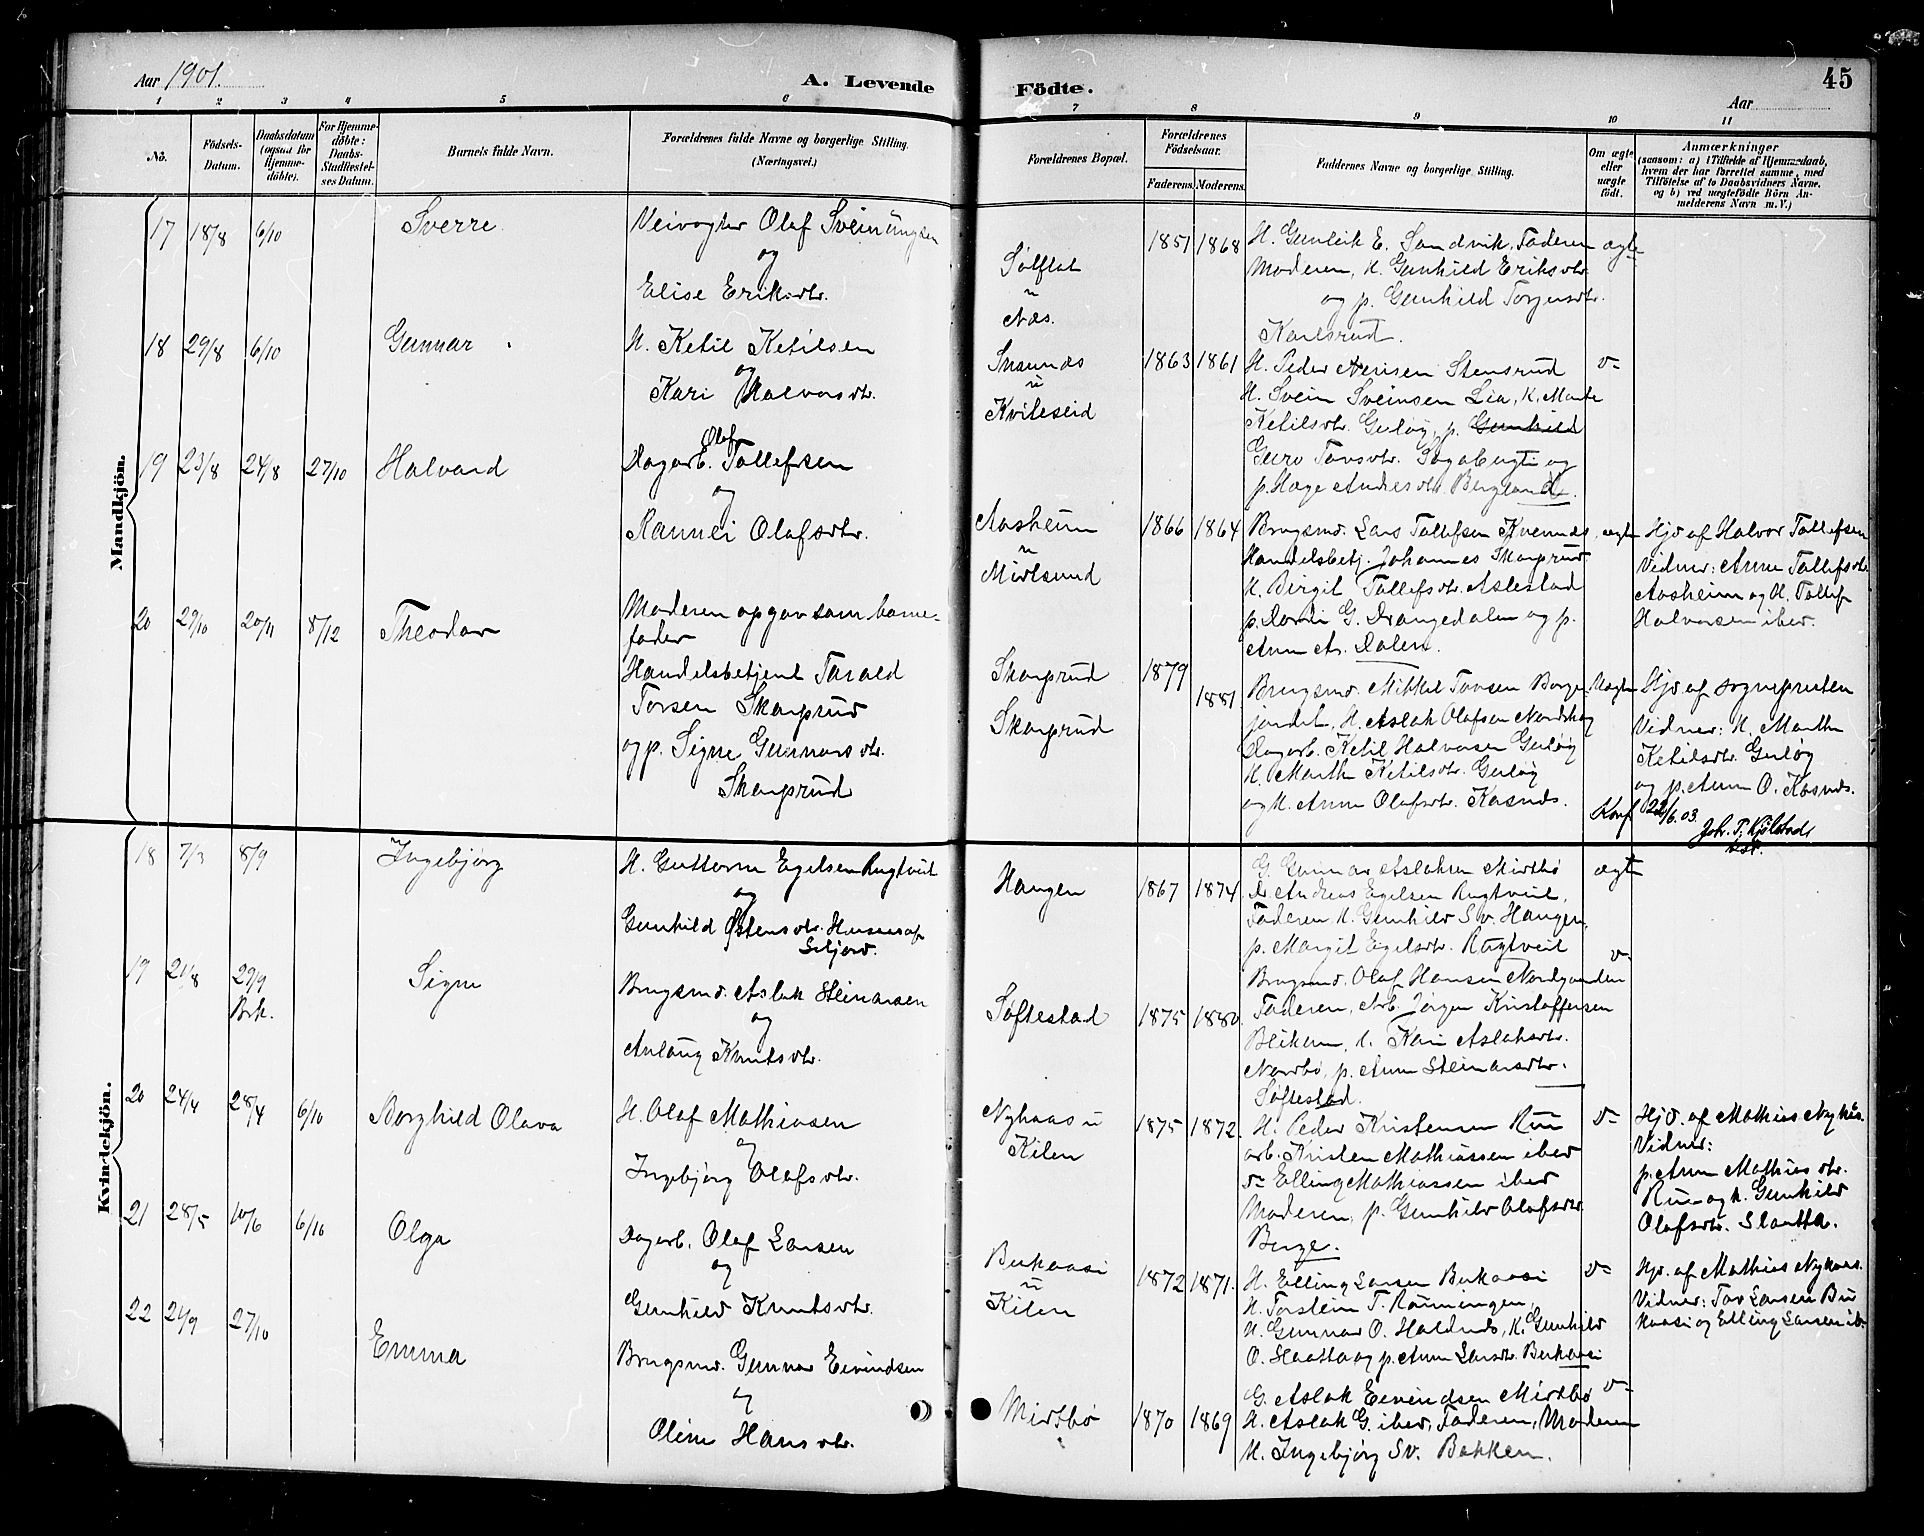 Aar 1901.
A. Levende
Födte.
45
Aar
1 2 3 4 5 6 7 8 9 10 11
No.
Födsels-Datum.
Daabsdatum (ogsaa for Hjemmedöbte).
For Hjemmedöbte: Daabs-Stadfæstelses Datum.
Barnets fulde Navn.
Forældrenes fulde Navne og borgerlige Stilling. (Næringsvei.)
Forældrenes Bopæl.
Forældrenes Födselsaar.
Faderens. Moderens.
Faddernes Navne og borgerlige Stilling.
Om ægte eller uægte födt.
Anmærkninger
(saasom: a) i Tilfælde af Hjemmedaab, hvem der har forrettet samme, med Tilföielse af to Daabsvidners Navne, og b) ved uægtefödte Börn Anmelderens Navn m. V.)
Mandkjön.
17 18/8 6/10 Sverre
Veivogter Olaf Sveinungsen
og
Elise Eriksdtr.
Sölftat
u
Næs.
1851 1868
H. Gunleik E. Sandvik, Faderen
Moderen, K. Gunhild Eriksdtr.
og p. Gunhild Torjusdtr.
Karlsrud.
ægte
18 29/8 6/10 Gunnar
H. Ketil Ketilsen
og
Kari Halvorsdtr.
Snsundas
u
Kviteseid
1863 1861
H. Peder Nensen Stensrud
H. Svein Sveinsen Lia, K. Marte
Ketilsdtr. Gulög, p. Gunhild
Guro Tovsdtr. og
p. Hæge Andresdtr. Bergland.
19 23/8 24/8 27/10 Halvard
Dagarb. Olaf Tollefsen
og
Rannei Olafsdtr.
Aasheim
u
Mirlsund
1866 1864
Brugsmd. Lars Tollefsen Kvennds
Handelsbetj. Johannes Skarprud
K. Birgit Tallefsdtr. Aslestad
p. Dordi G. Drangedalen og p.
Anne A. Dalen.
ægte
Hjd af Halvor Tallefsen
Vidner: Anne Tallefsdtr.
Aasheim og H. Tallef
Halvorsen ibid.
20 29/10 20/11 8/12 Theodor
Moderen opgav som barne-
fader
Handelsbetjent Tarald
Torsen Skarprud
og p. Signe Gunnarsdtr.
Skarprud
Skarprud
Skarprud
1879
1881
Brugsmd. Mikkel Tovsen Borge-
jordet, H. Aslak Olafsen Nordskog
Dagarb. Ketil Halvorsen Gulög
K. Marthe Ketilsdtr. Gulög
og K. Anne Olafsdtr. Kasnds.
Uægte
Hjd af sognepresten
Vidner: K. Marthe
Ketilsdtr. Gulög
og p. Anne O. Kosnds.
Konf. 22/6.03.
Joh. T. Kjölstad
Kvindekjön.
18 7/3 8/9 Ingebjörg
H. Guttorm Egilsen Rugtveit
og
Gunhild Östensdtr. Husmaaf
Seljord.
Haugen
1867 1874
G. Gunnar Aslaksen Mirtbö
D. Andreas Egilsen Rugtveit,
Faderen, K. Gunhild Sv. Haugen,
p. Margit Egilsdtr. Rugtveit
ægte
19 21/8 29/9
Brk.
Signe
Brugsmd. Aslak Steinarsen
og
Anlaug Knutsdtr.
Söftestad
1875 1880
Brugsmd. Olaf Hansen Nordgaarden
Faderen, Arb. Jörgen Kristoffersen
Bliken, K. Kari Aslaksdtr.
Nordbö, p. Anne Steinarsdtr.
Söftestad.
20 24/4 28/4 6/10 Borghild Olava
H. Olaf Mathiasen
og
Ingebjörg Olafsdtr.
Nyhaas u
Kilen
1875 1872
H. Peder Kristensen Rui
arb. Kristen Mathiassen ibid
Elling Mathiassen ibid
Moderen, p. Gunhild Olafsdtr.
Berge.
Hjd. af Mathias Nykaas.
Vidner:
p. Anne Mathiasdtr.
Rui og K. Gunhild
Olafsdtr. Slaatta.
21 28/5 10/6 6/10 Olga
Dagarb. Olaf Larsen
og
Gunhild Knutsdtr.
Bukaasi
u
Kilen
1872 1871.
H. Elling Larsen Bukaasi
H. Torstein T. Rönningen
H. Gunnar O. Haldnds, K. Gunhild
O. Slaatta og p. Anne Larsdtr. Bukaasi
Hjd. af Mathias Nykaas.
Vidner: Tov Larsen Bu
kaasi og Elling Larsen ib.
22 21/9 27/10 Emma
Brugsmd. Gunnar Eivindsen
og
Oline Hansdtr.
Mirtbö
1870 1869
G. Aslak Eivindsen Mirtbö
H. Aslak G. ibid, Faderen, Moderen
K. Ingebjörg Sv. Bakken.